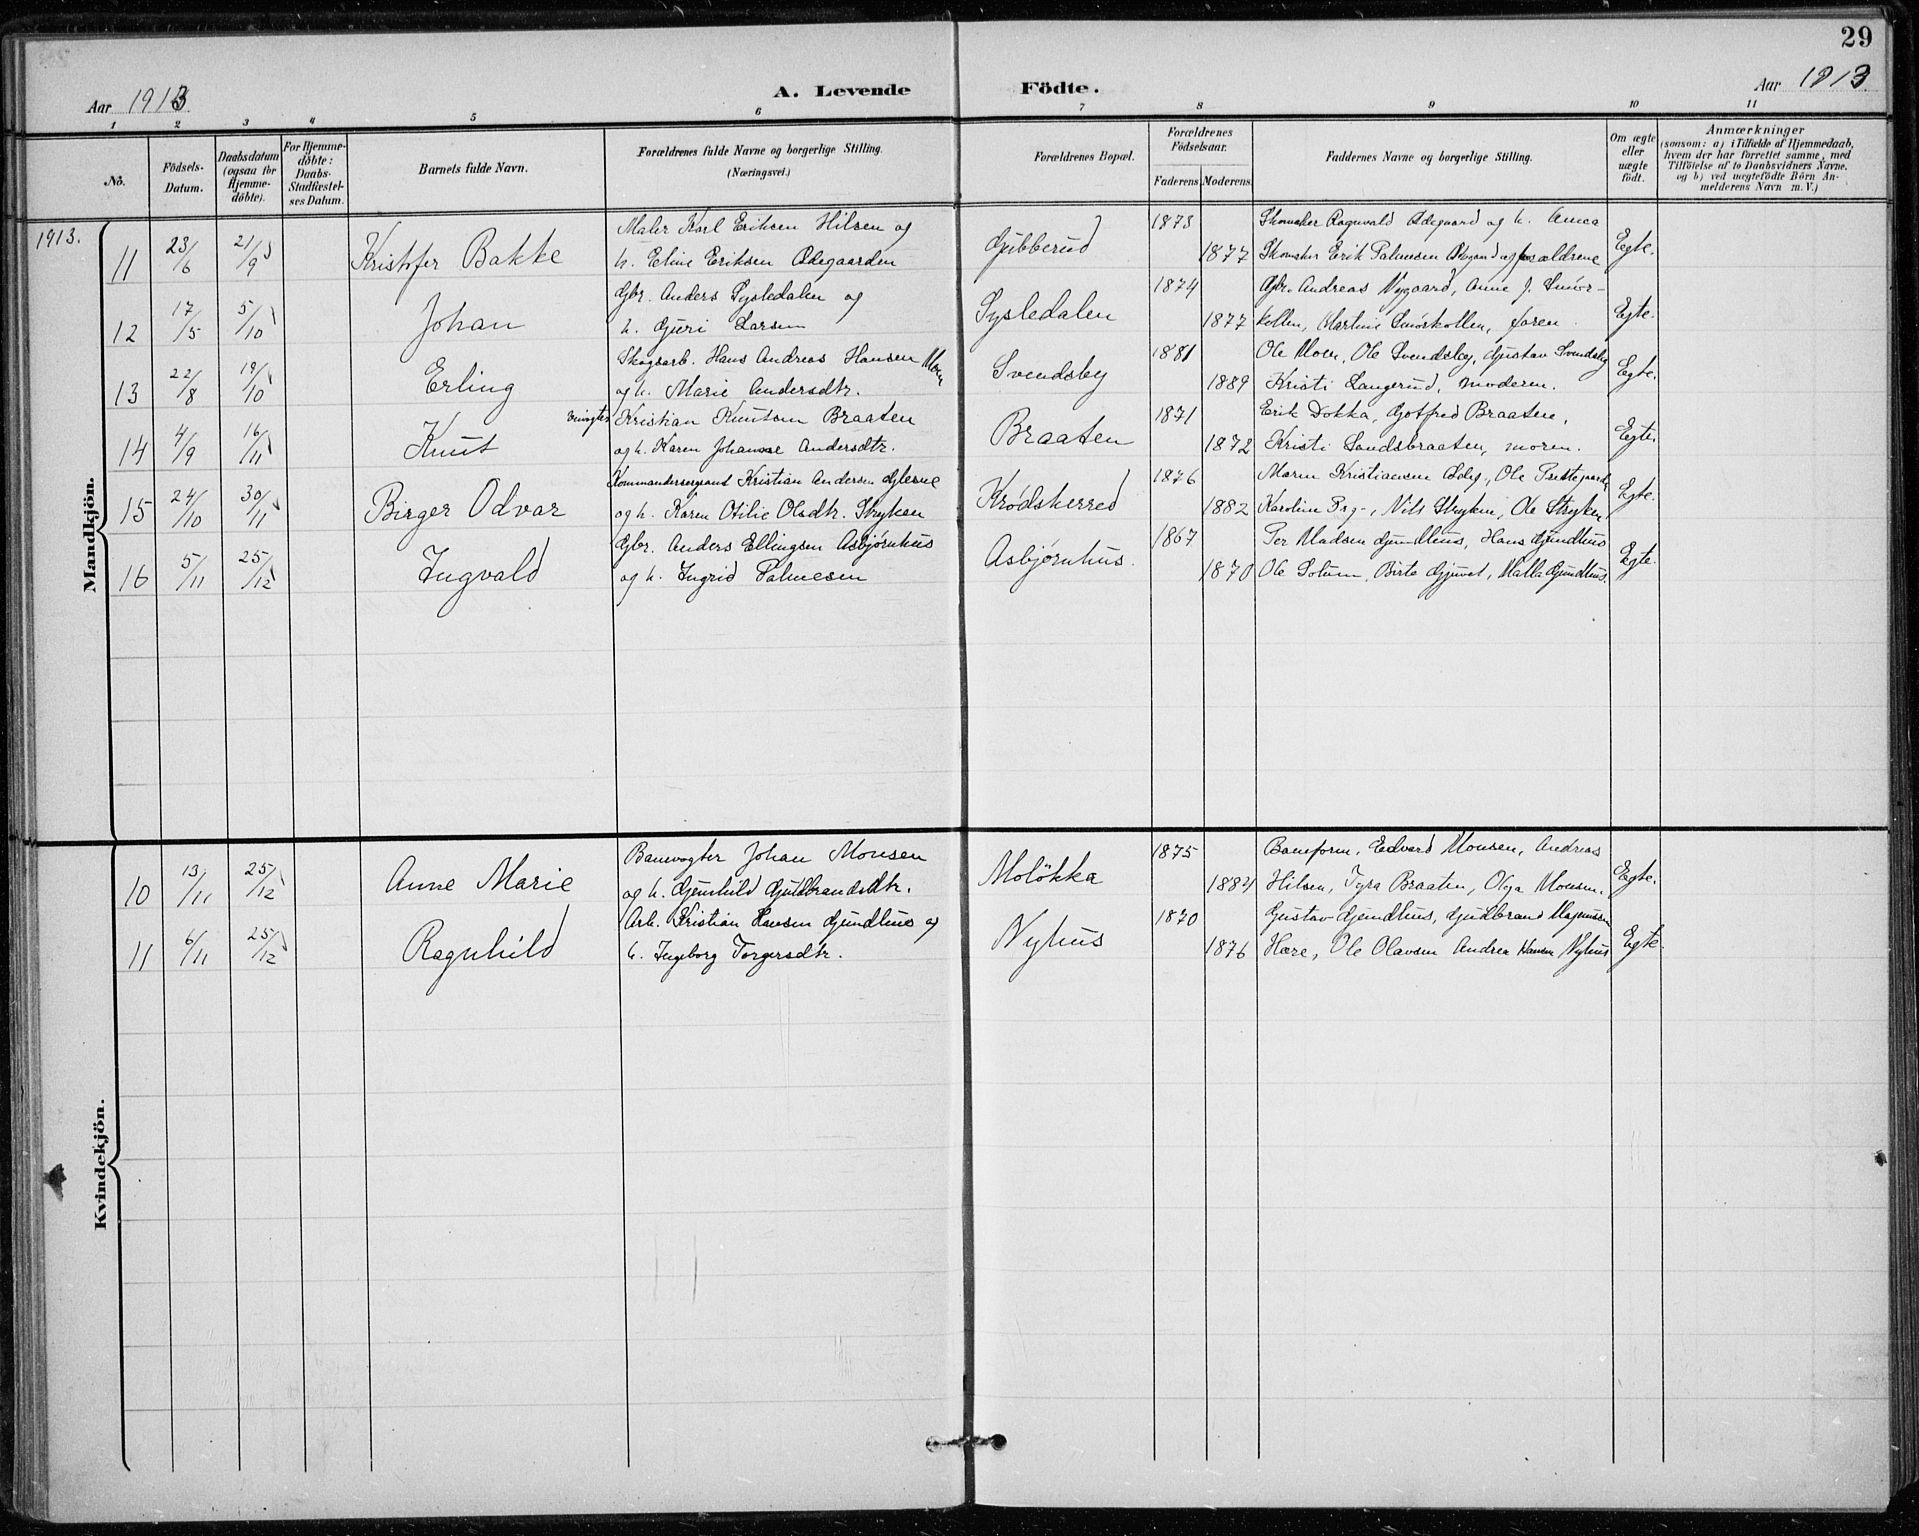 29
Aar 1913. A. Levende Födte. Aar 1913
1 2 3 4 5 6 7 8 9 10 11
No.
Födsels-Datum.
Daabsdatum (ogsaa for Hjemme-döbte).
For Hjemme-döbte: Daabs-Stadfæstel-ses Datum.
Barnets fulde Navn.
Forældrenes fulde Navne og borgerlige Stilling.
(Næringsvei.)
Forældrenes Bopæl.
Forældrenes Födselsaar.
Faderens Moderens
Faddernes Navne og borgerlige Stilling.
Om ægte eller uægte födt.
Anmærkninger
(saasom: a) i Tilfælde af Hjemmedaab,
hvem der har forrettet samme, med
Tilföielse af to Daabsvidners Navne,
og b) ved uægtefödte Börn An-
melderens Navn m. V.)
1913.
Mandkjön.
Maler Karl Eriksen Hilsen og 1873 Skomaker Ragnvald Ødegaard og h. Anna
11 23/6 21/9 Kristofer Bakke h. Eline Eriksen Ødegaarden Gubberud 1877 Skomaker Erik Palmesen Ødegaard og forældrene Egte.
Gbr. Anders Sysledalen og 1874 Gbr. Andreas Nygaard, Anne J. Smør-
12 17/5 5/10 Johan h. Guri Larsen Sysledalen 1877 kollen, Martine Smørkollen, faren. Egte.
Skogsarb. Hans Andreas Hansen Moen 1881 Ole Moen, Ole Svendsby, Gustav Svendsby
13 22/8 19/10 Erling og h. Marie Andersdtr. Svendsby 1889 Kristi Langerud, moderen. Egte.
Kristian Knutsen Braaten 1871 Erik Dokka, Gotfred Braaten,
14 4/9 16/11 Knut og h. Karen Johanne Andersdtr. Braaten 1872 Kristi Sandsbraaten, moren. Egte.
Kommandersergeant Kristian Andersen Glesne 1876 Maren Kristiansen, Ole
15 24/10 30/11 Birger Odvar og h. Karen Otilie Olsdtr. Stryken Krødsherred 1882 Karoline, Nils Stryken, Ole Stryken Egte.
Gbr. Anders Ellingsen Asbjørnhus 1867 Per Madsen Gundhus, Hans Gundhus
16 5/11 25/12 Ingvald og h. Ingrid Palmesen Asbjørnhus. 1870 Ole Solum, Birte Gjuvet, Malla Gundhus. Egte.
Kvindekjön.
Banevogter Johan Monsen 1875 Baneform. Edvard Monsen, Andreas
10 13/11 25/12 Anne Marie og h. Gunhild Guldbrandsdtr. Moløkka 1884 Hilsen, Tyra Braaten, Olga Monsen. Egte.
Arb. Kristian Hansen Gundhus og 1870 Gustav Gundhus, Gudbrand Magnussen
11 6/11 25/12 Ragnhild h. Ingeborg Torgersdtr. Nyhus 1876 Hære, Ole Olavsen Andrea Hansen Nyhus Egte